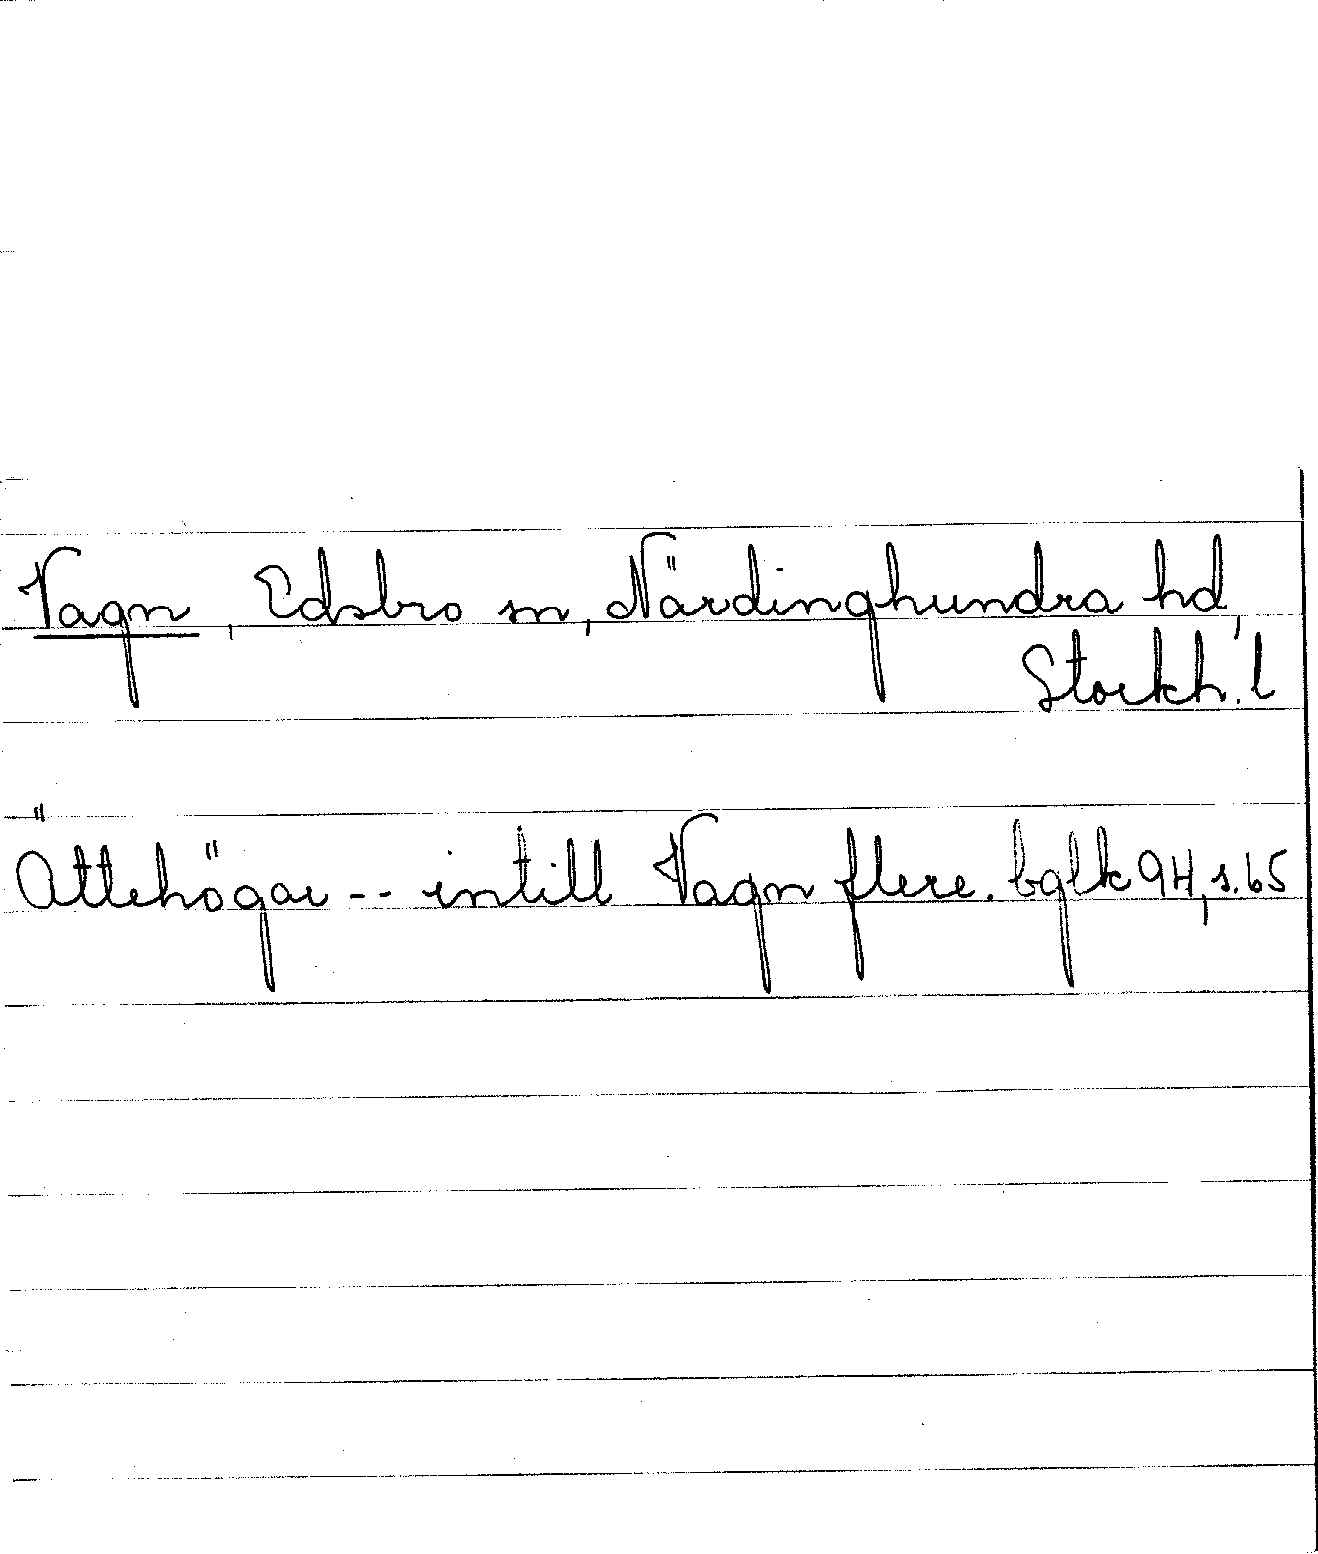 Vagn, Edsbro sn, Närdinghundra hd,
Stockh. l
Ättehögar -- intill Vagn flere. bglk 94, s. 65